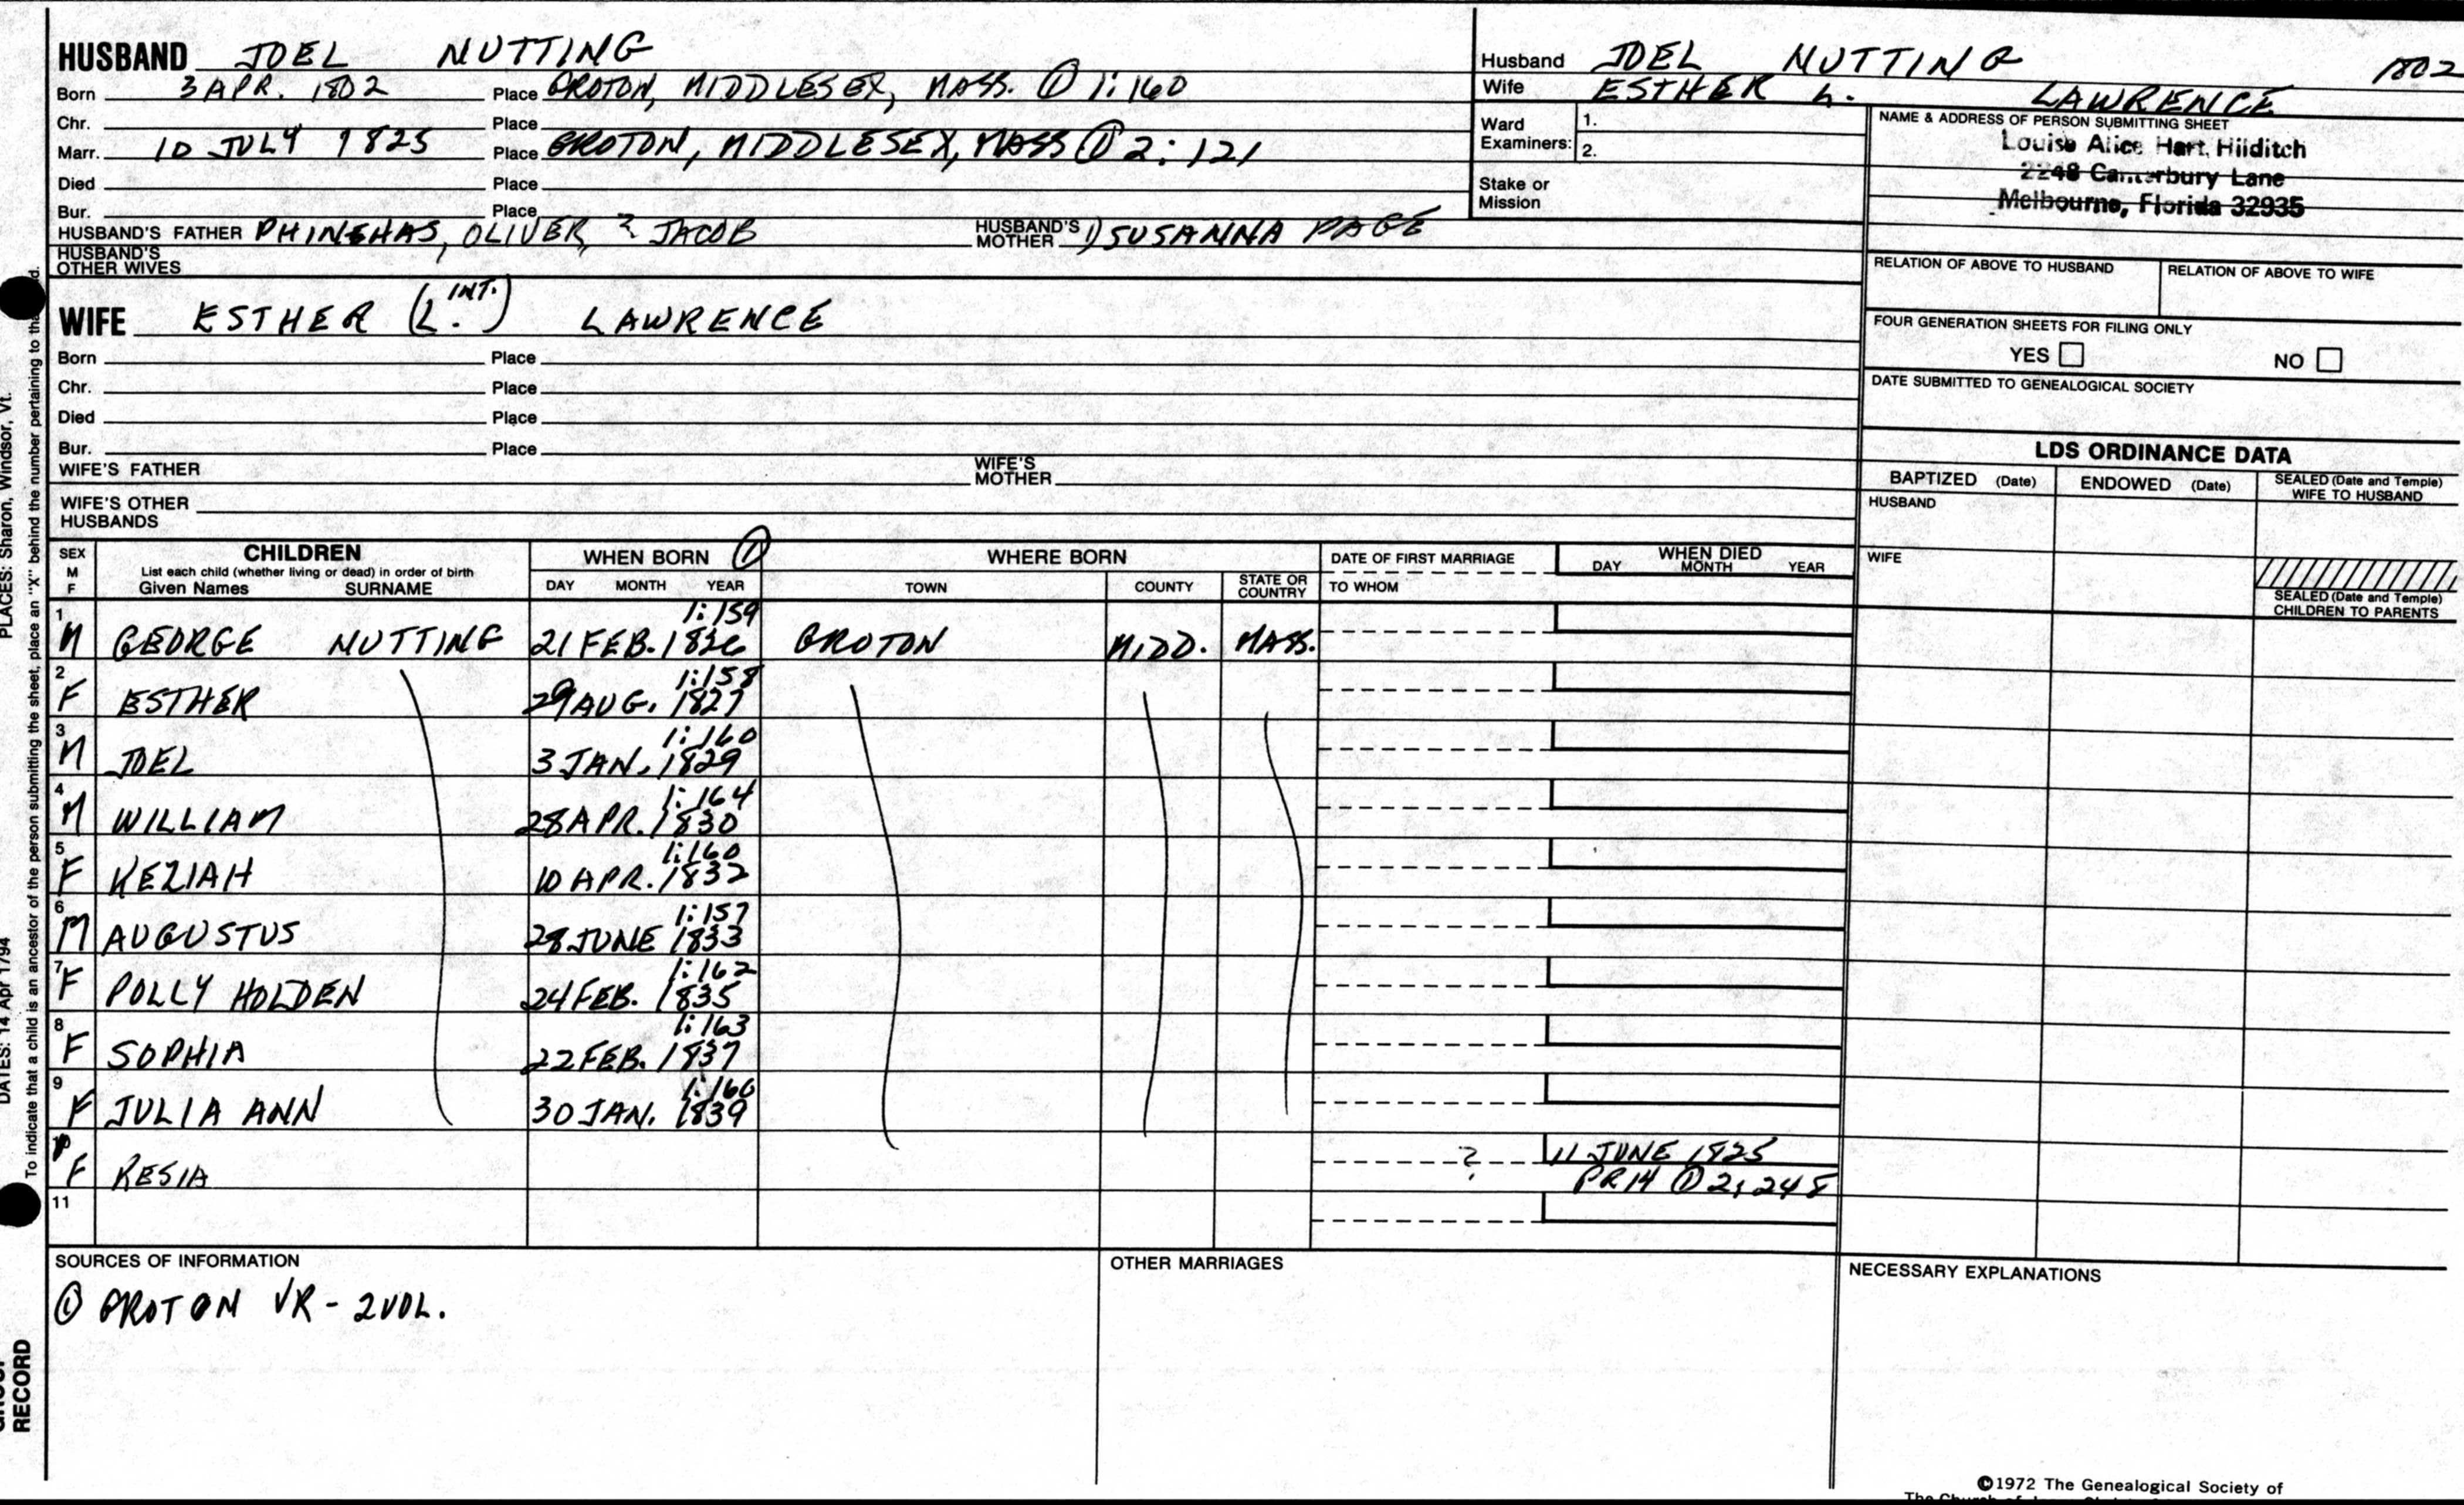 HUSBAND JOEL NUTTING
Born 3 APR. 1802 Place GROTON, MIDDLESEX, MASS. ① 1:160
Chr. Place
Marr. 10 JULY 1825 Place GROTON, MIDDLESEX, MASS ① 2:121
Died Place
Bur. Place
HUSBAND'S FATHER PHINEHAS, OLIVER, JACOB HUSBAND'S MOTHER 1) SUSANNA PAGE
HUSBAND'S OTHER WIVES
Husband JOEL NUTTING 1802
Wife ESTHER L. LAWRENCE
Ward Examiners: 1.
2.
Stake or Mission
NAME & ADDRESS OF PERSON SUBMITTING SHEET
Louise Alice Hart Hilditch
2248 Canterbury Lane
Melbourne, Florida 32935
RELATION OF ABOVE TO HUSBAND RELATION OF ABOVE TO WIFE
FOUR GENERATION SHEETS FOR FILING ONLY
YES NO
DATE SUBMITTED TO GENEALOGICAL SOCIETY
WIFE ESTHER (L. INT.) LAWRENCE
Born Place
Chr. Place
Died Place
Bur. Place
WIFE'S FATHER WIFE'S MOTHER
WIFE'S OTHER HUSBANDS
LDS ORDINANCE DATA
BAPTIZED (Date) ENDOWED (Date) SEALED (Date and Temple) WIFE TO HUSBAND
HUSBAND
WIFE
SEALED (Date and Temple) CHILDREN TO PARENTS
SEX M F CHILDREN WHEN BORN ① WHERE BORN DATE OF FIRST MARRIAGE WHEN DIED
List each child (whether living or dead) in order of birth
Given Names SURNAME DAY MONTH YEAR TOWN COUNTY STATE OR COUNTRY TO WHOM DAY MONTH YEAR
1 M GEORGE NUTTING 1:159 21 FEB. 1826 GROTON MIDD. MASS.
2 F ESTHER 1:158 29 AUG. 1827
3 M JOEL 1:160 3 JAN. 1829
4 M WILLIAM 1:164 28 APR. 1830
5 F KEZIAH 1:160 10 APR. 1832
6 M AUGUSTUS 1:157 28 JUNE 1833
7 F POLLY HOLDEN 1:162 24 FEB. 1835
8 F SOPHIA 1:163 22 FEB. 1837
9 F JULIA ANN 1:160 30 JAN. 1839
10 F RESIA ? 11 JUNE 1825
PR14 ① 2:248
11
SOURCES OF INFORMATION
① GROTON VR - 2 VOL.
OTHER MARRIAGES
NECESSARY EXPLANATIONS
©1972 The Genealogical Society of
PLACES: Sharon, Windsor, Vt.
DATES: 14 Apr 1794
To indicate that a child is an ancestor of the person submitting the sheet, place an "X" behind the number pertaining to
RECORD